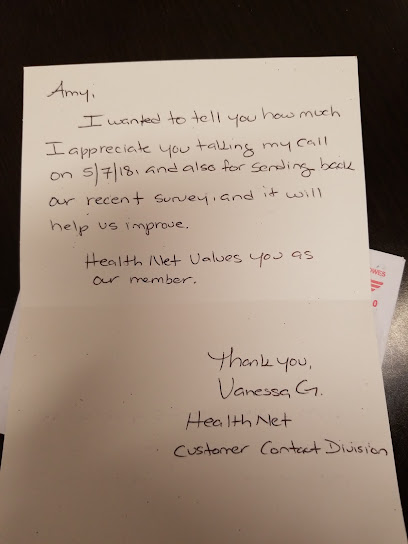 Amy,
I wanted to tell you how much
I appreciate you taking my call
on 5/7/18, and also for sending back
our recent survey, and it will
help us improve.
Health Net Values you as
our member.
Thank you,
Vanessa G.
Health Net
Customer Contact Division